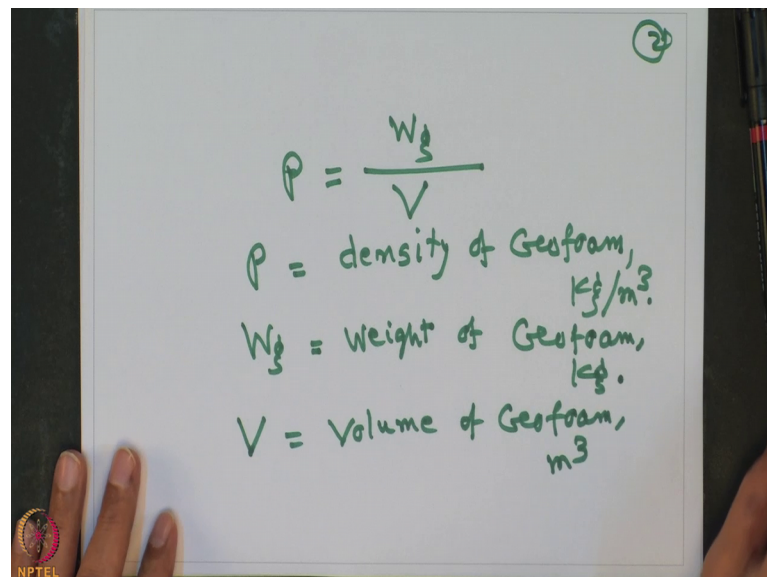 2
ρ = Wg / V
ρ = density of Geofoam,
Kg/m³.
Wg = Weight of Geofoam,
Kg.
V = Volume of Geofoam,
m³
NPTEL